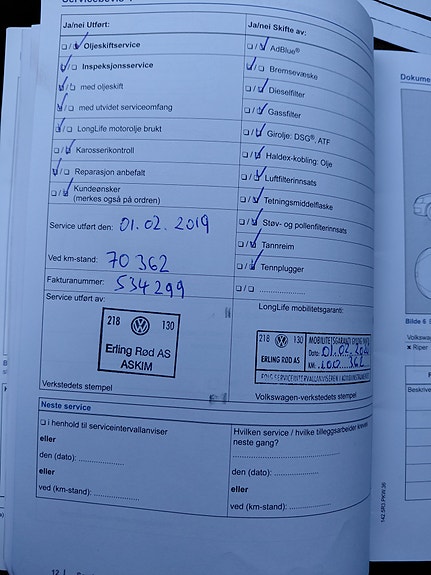 Ja/nei Utført:
☐/☑ Oljeskiftservice
☑/☐ Inspeksjonsservice
☑/☐ med oljeskift
☑/☐ med utvidet serviceomfang
☑/☐ LongLife motorolje brukt
☐/☑ Karosserikontroll
☑/☐ Reparasjon anbefalt
☐/☑ Kundeønsker
(merkes også på ordren)
Service utført den: 01.02.2019
Ved km-stand: 70362
Fakturanummer: 534299
Service utført av:
218 130
Erling Rød AS
ASKIM
Verkstedets stempel
Ja/nei Skifte av:
☐/☑ AdBlue®
☑/☐ Bremsevæske
☐/☑ Dieselfilter
☐/☑ Gassfilter
☐/☑ Girolje: DSG®, ATF
☐/☑ Haldex-kobling: Olje
☐/☑ Luftfilterinnsats
☐/☑ Tetningsmiddelflaske
☐/☑ Støv- og pollenfilterinnsats
☐/☑ Tannreim
☐/☑ Tennplugger
☐/☐ ....................
LongLife mobilitetsgaranti:
218 130
ERLING RØD AS
MOBILITETSGARANTI
Dato: 01.02.
KM.
FØLG SERVICEINTERVALLANVISEREN
Volkswagen-verkstedets stempel
Neste service
☐ i henhold til serviceintervallanviser
eller
den (dato): ....................
eller
ved (km-stand): ....................
Hvilken service / hvilke tilleggsarbeider kreves
neste gang?
den (dato): ....................
eller
ved (km-stand): ....................
12
Dokume
Bilde 6
Volkswage
✖ Riper
Beskrive